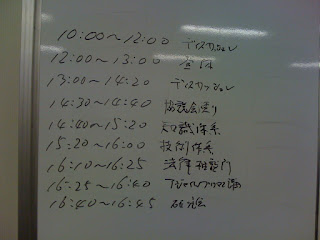 10:00～12:00 ディスカッション
12:00～13:00
13:00～14:20 ディスカッション
14:30～14:40 協議会便り
14:40～15:20 知識体系
15:20～16:00 技術体系
16:10～16:25 法律相談内
16:25～16:40
16:40～16:45